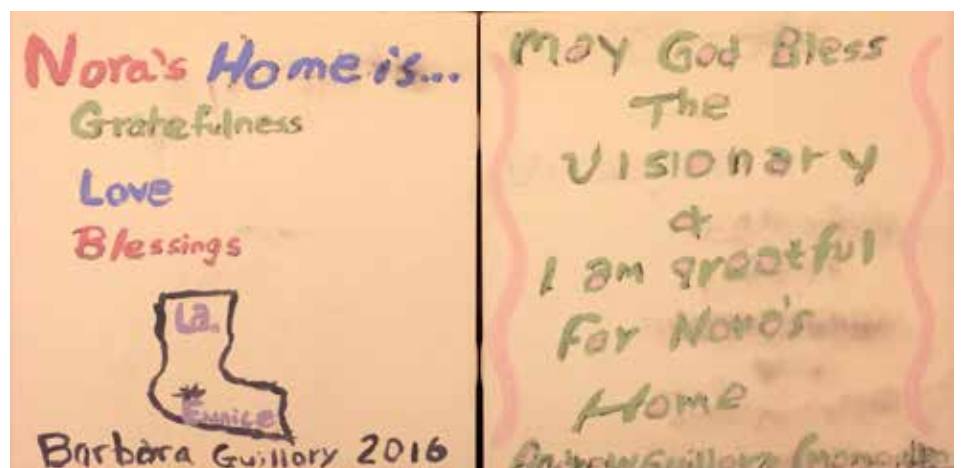 Nora's Home is...
Gratefulness
Love
Blessings
La.
Eunice
Barbara Guillory 2016
May God Bless
The
Visionary
&
I am greatful
For Nora's
Home
Andrew Guillory